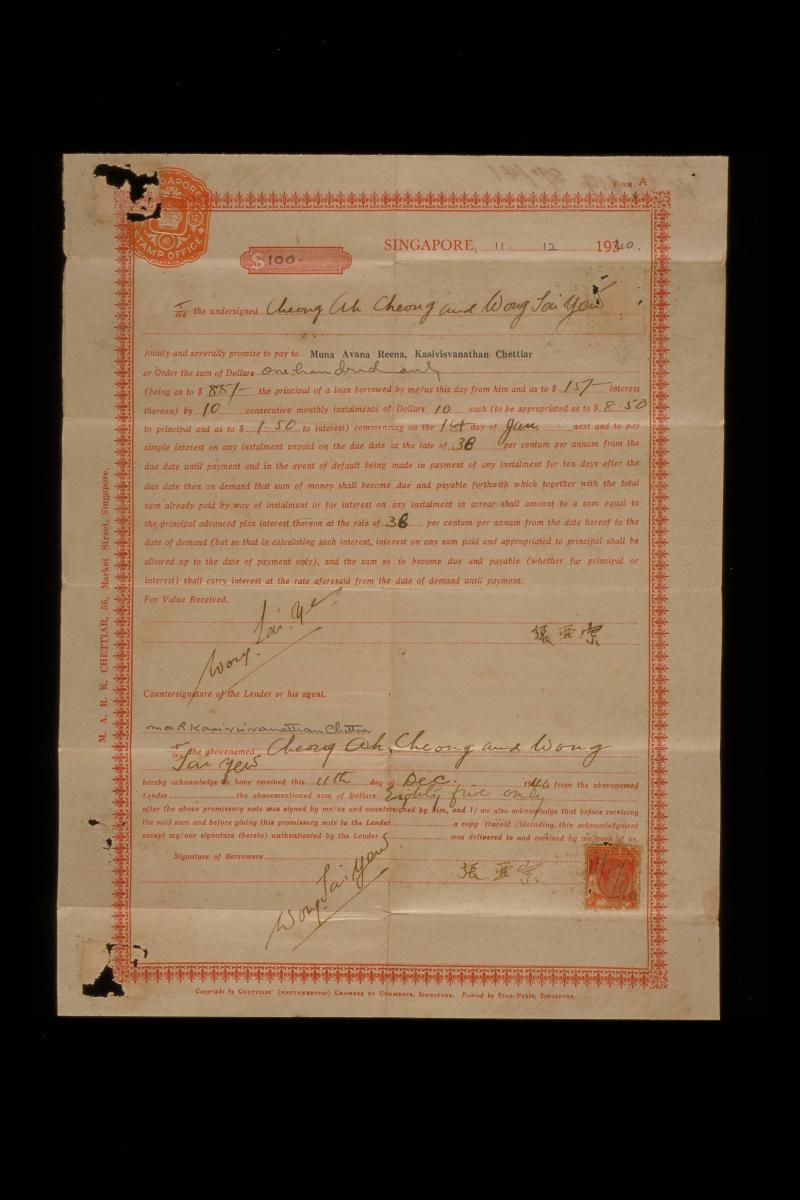 SINGAPORE
STAMP OFFICE
FORM A
SINGAPORE, 11. 12 1940.
$100.
I/We the undersigned Cheong Ah Cheong and Wong Sai Yew
jointly and severally promise to pay to Muna Avana Reena, Kasivisvanathan Chettiar
or Order the sum of Dollars one hundred only
(being as to $ 85/- the principal of a loan borrowed by me/us this day from him and as to $ 15/- interest
thereon) by 10 consecutive monthly instalments of Dollars 10 each (to be appropriated as to $ 8.50
to principal and as to $ 1.50 to interest) commencing on the 1st day of Jan. next and to pay
simple interest on any instalment unpaid on the due date at the rate of 36 per centum per annum from the
due date until payment and in the event of default being made in payment of any instalment for ten days after the
due date then on demand that sum of money shall become due and payable forthwith which together with the total
sum already paid by way of instalment or for interest on any instalment in arrear shall amount to a sum equal to
the principal advanced plus interest thereon at the rate of 36 per centum per annum from the date hereof to the
date of demand (but so that in calculating such interest, interest on any sum paid and appropriated to principal shall be
allowed up to the date of payment only), and the sum so to become due and payable (whether for principal or
interest) shall carry interest at the rate aforesaid from the date of demand until payment.
For Value Received.
Wong Sai Yew
張亞宗
Countersignature of the Lender or his agent.
M A R Kasivisvanathan Chettiar
I/We the abovenamed Cheong Ah Cheong and Wong
Sai Yew
hereby acknowledge to have received this 11th day of Dec. 1940 from the abovenamed
Lender the abovementioned sum of Dollars Eighty five only
after the above promissory note was signed by me/us and countersigned by him, and I/we also acknowledge that before receiving
the said sum and before giving this promissory note to the Lender a copy thereof (including this acknowledgment
except my/our signature thereto) authenticated by the Lender was delivered to and received by me/each of us.
Signature of Borrowers
Wong Sai Yew
張亞宗
Copyright by CHETTIARS' (NATTUKOTTAI) CHAMBER OF COMMERCE, SINGAPORE. Printed by STAR PRESS, SINGAPORE.
M. A. R. K. CHETTIAR, 56, Market Street, Singapore.